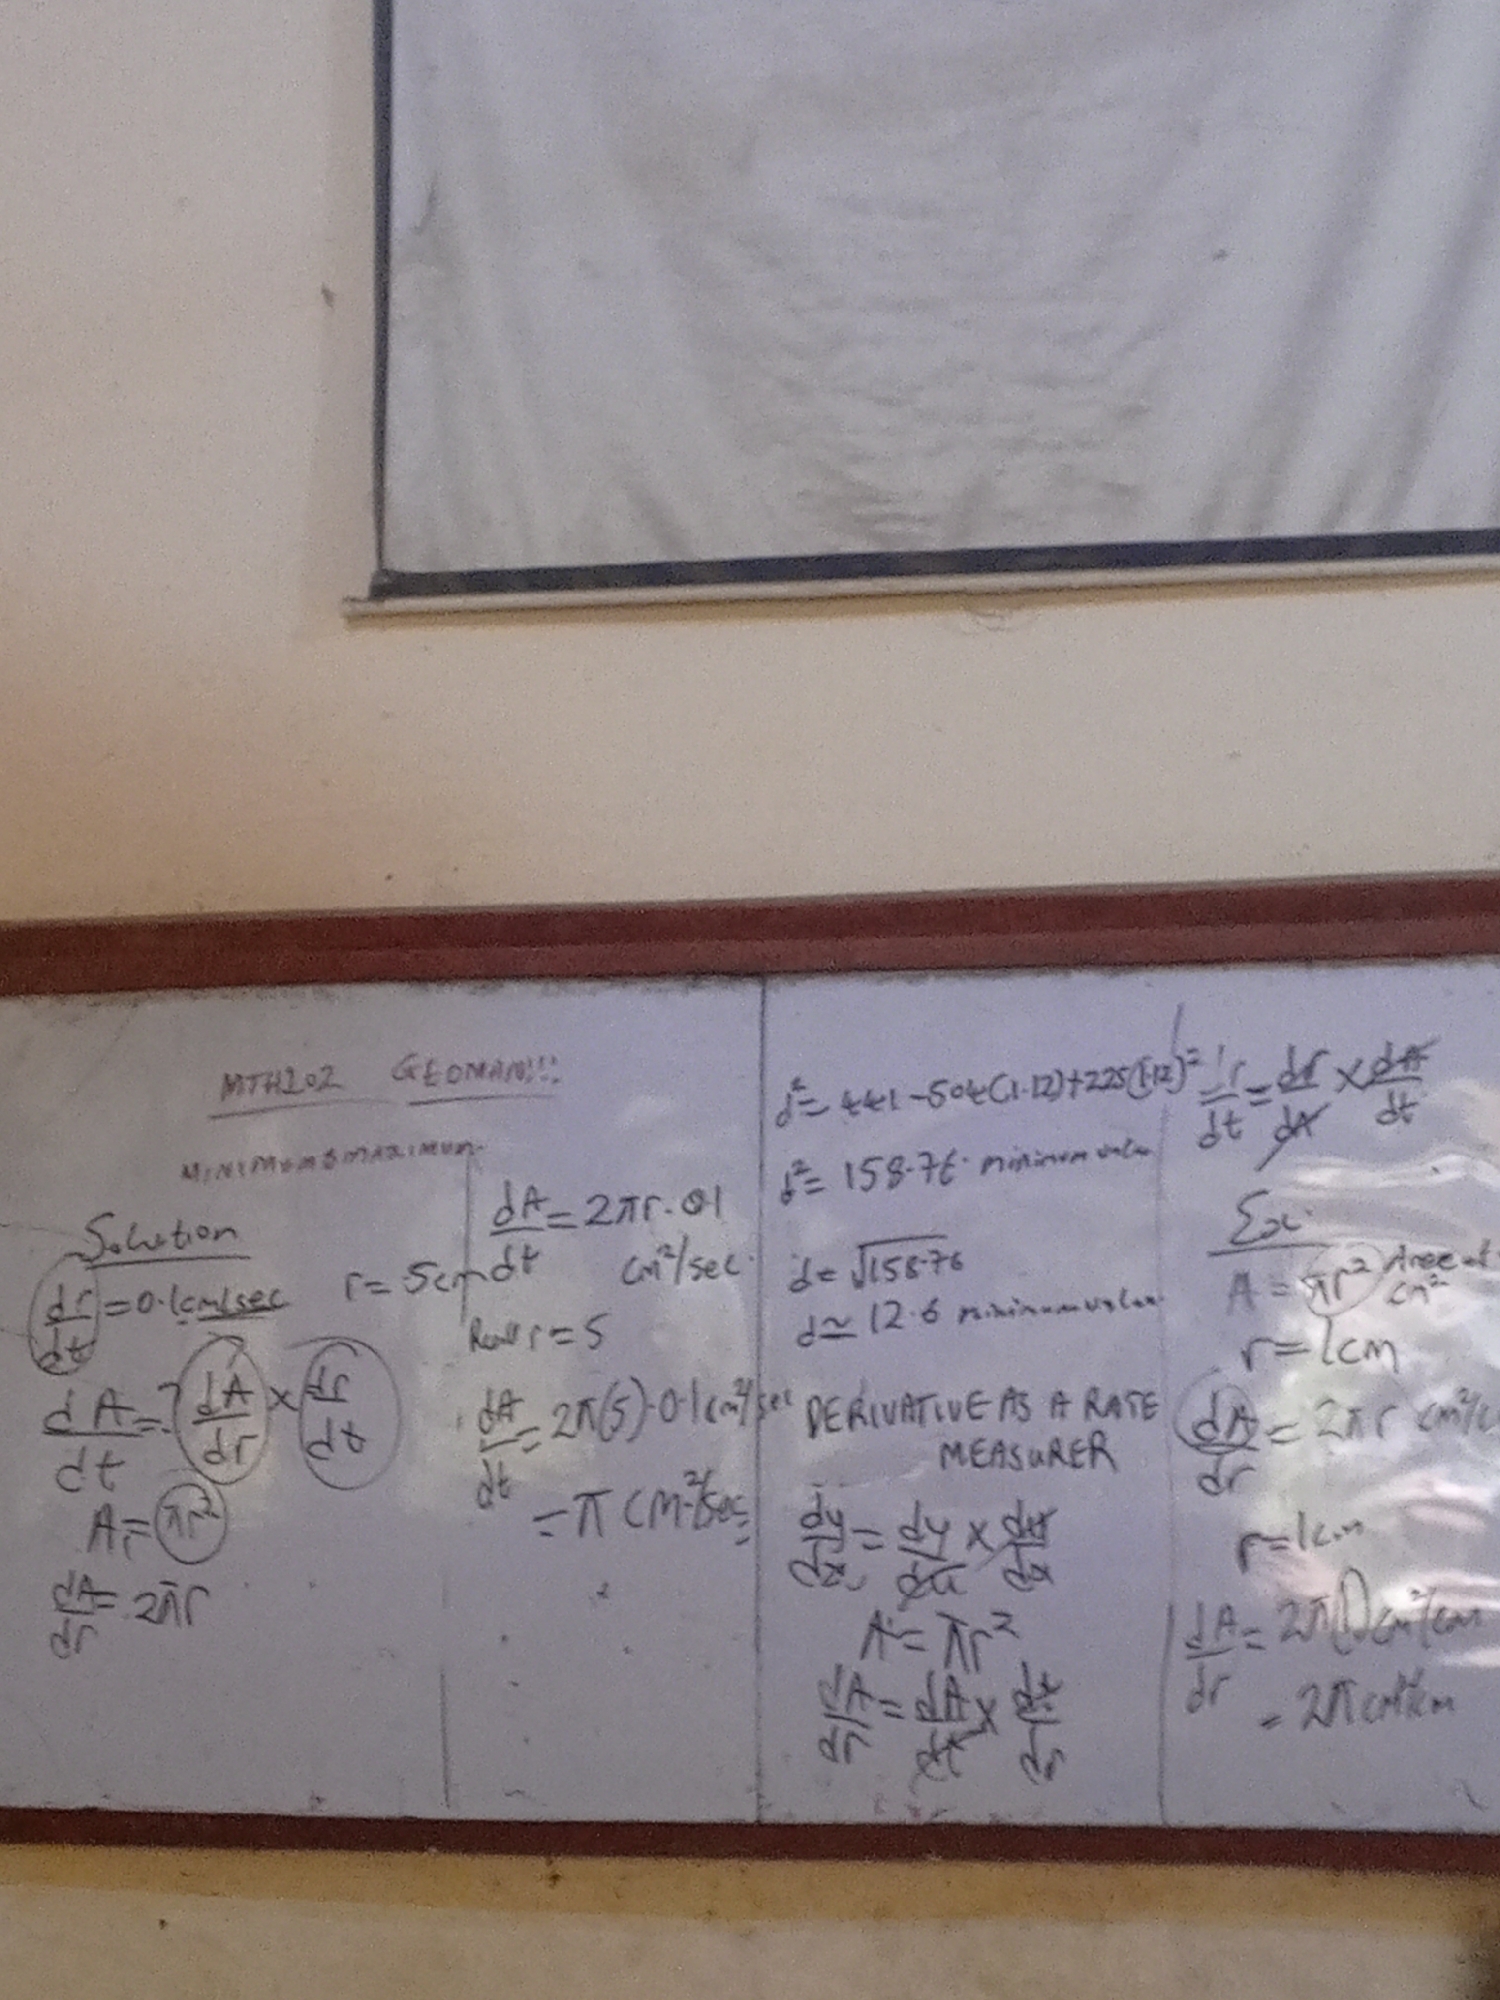 MTH202 GEOMAN!!!
MINIMUM & MAXIMUM
Solution
dr/dt = 0.1cm/sec
r = 5cm
dA/dt = ? dA/dr × dr/dt
A = πr²
dA/dr = 2πr
dA/dt = 2πr · 0.1
cm²/sec
Recall r = 5
dA/dt = 2π(5) · 0.1cm²/sec
= π cm²/sec
d² = 441 - 504(1.12) + 225(1.12)²
d² = 158.76 minimum value
d = √158.76
d ≃ 12.6 minimum value
DERIVATIVE AS A RATE
MEASURER
dy/dx = dy/du × du/dx
A = πr²
dA/dr = dA/dt × dt/dr
dr/dt = dr/dA × dA/dt
Ex.
A = πr² Area
cm²
r = 1cm
dA/dr = 2πr cm²/
r = 1cm
dA/dr = 2π(1) cm²/cm
= 2π cm²/cm